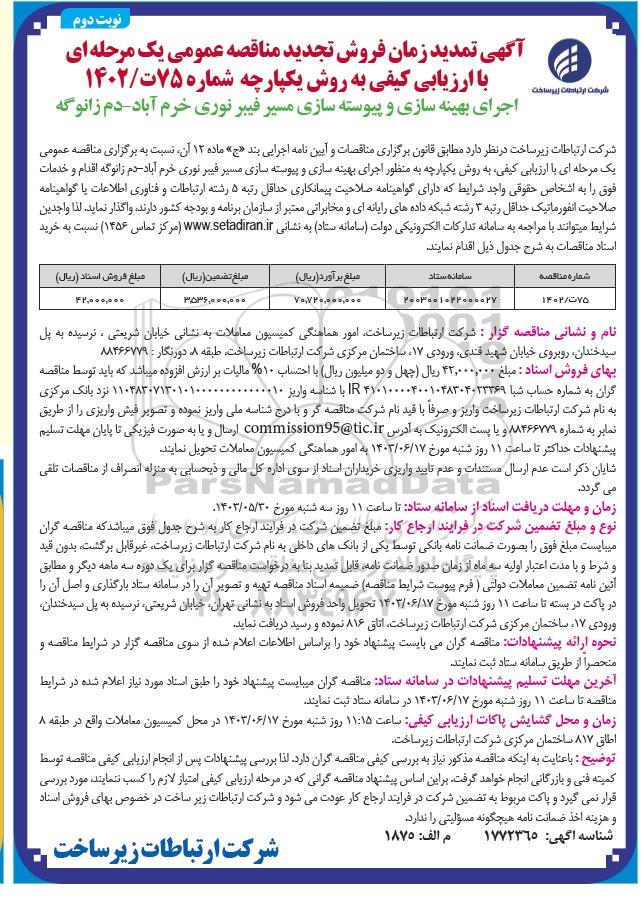 نوبت دوم
شرکت ارتباطات زیرساخت
آگهی تمدید زمان فروش تجدید مناقصه عمومی یک مرحله ای
با ارزیابی کیفی به روش یکپارچه شماره ۷۵ت/۱۴۰۲
اجرای بهینه سازی و پیوسته سازی مسیر فیبر نوری خرم آباد-دم زانوگه
شرکت ارتباطات زیرساخت درنظر دارد مطابق قانون برگزاری مناقصات و آیین نامه اجرایی بند «ج» ماده ۱۲ آن، نسبت به برگزاری مناقصه عمومی
یک مرحله ای با ارزیابی کیفی، به روش یکپارچه به منظور اجرای بهینه سازی و پیوسته سازی مسیر فیبر نوری خرم آباد-دم زانوگه اقدام و خدمات
فوق را به اشخاص حقوقی واجد شرایط که دارای گواهینامه صلاحیت پیمانکاری حداقل رتبه ۵ رشته ارتباطات و فناوری اطلاعات یا گواهینامه
صلاحیت انفورماتیک حداقل رتبه ۳ رشته شبکه داده های رایانه ای و مخابراتی معتبر از سازمان برنامه و بودجه کشور دارند، واگذار نماید. لذا واجدین
شرایط میتوانند با مراجعه به سامانه تدارکات الکترونیکی دولت (سامانه ستاد) به نشانی www.setadiran.ir (مرکز تماس ۱۴۵۶) نسبت به خرید
اسناد مناقصات به شرح جدول ذیل اقدام نمایند.
شماره مناقصه سامانه ستاد مبلغ برآورد(ریال) مبلغ تضمین(ریال) مبلغ فروش اسناد (ریال)
۷۵ت/۱۴۰۲ ۲۰۰۳۰۰۱۰۲۲۰۰۰۰۲۷ ۷۰,۷۲۰,۰۰۰,۰۰۰ ۳۵۳۶,۰۰۰,۰۰۰ ۴۲,۰۰۰,۰۰۰
نام و نشانی مناقصه گزار : شرکت ارتباطات زیرساخت، امور هماهنگی کمیسیون معاملات به نشانی خیابان شریعتی ، نرسیده به پل
سیدخندان، روبروی خیابان شهید قندی، ورودی ۱۷، ساختمان مرکزی شرکت ارتباطات زیرساخت، طبقه ۸، دورنگار : ۸۸۴۶۶۷۷۹
بهای فروش اسناد : مبلغ ۴۲,۰۰۰,۰۰۰ ریال (چهل و دو میلیون ریال) با احتساب ۱۰% مالیات بر ارزش افزوده میباشد که باید توسط مناقصه
گران به شماره حساب شبا IR ۴۱۰۱۰۰۰۰۴۰۰۱۰۴۸۳۰۴۰۲۳۳۶۹ با شناسه واریز نزد بانک مرکزی
به نام شرکت ارتباطات زیرساخت واریز و صرفاً با قید نام شرکت مناقصه گر و با درج شناسه ملی واریز نموده و تصویر فیش واریزی را از طریق
نمابر به شماره ۸۸۴۶۶۷۷۹ و یا پست الکترونیک به آدرس commission95@tic.ir ارسال و یا به صورت فیزیکی تا پایان مهلت تسلیم
پیشنهادات حداکثر تا ساعت ۱۱ روز شنبه مورخ ۱۴۰۳/۰۶/۱۷ به امور هماهنگی کمیسیون معاملات تحویل نمایند.
شایان ذکر است عدم ارسال مستندات و عدم تایید واریزی خریداران اسناد از سوی اداره کل مالی و ذیحسابی به منزله انصراف از مناقصات تلقی
می گردد.
زمان و مهلت دریافت اسناد از سامانه ستاد: تا ساعت ۱۱ روز سه شنبه مورخ ۱۴۰۳/۰۵/۳۰.
نوع و مبلغ تضمین شرکت در فرایند ارجاع کار: مبلغ تضمین شرکت در فرایند ارجاع کار به شرح جدول فوق میباشدکه مناقصه گران
میبایست مبلغ فوق را بصورت ضمانت نامه بانکی توسط یکی از بانک های داخلی به نام شرکت ارتباطات زیرساخت، غیرقابل برگشت، بدون قید
و شرط و با مدت اعتبار اولیه سه ماه از زمان صدور ضمانت نامه، قابل تمدید بنا به درخواست مناقصه گزار برای یک دوره سه ماهه دیگر و مطابق
آئین نامه تضمین معاملات دولتی ( فرم پیوست شرایط مناقصه) ضمیمه اسناد مناقصه تهیه و تصویر آن را در سامانه ستاد بارگذاری و اصل آن را
در پاکت در بسته تا ساعت ۱۱ روز شنبه مورخ ۱۴۰۳/۰۶/۱۷ تحویل واحد فروش اسناد به نشانی تهران، خیابان شریعتی، نرسیده به پل سیدخندان،
ورودی ۱۷، ساختمان مرکزی شرکت ارتباطات زیرساخت، اتاق ۸۱۶ نموده و رسید دریافت نماید.
نحوه ارائه پیشنهادات: مناقصه گران می بایست پیشنهاد خود را براساس اطلاعات اعلام شده از سوی مناقصه گزار در شرایط مناقصه و
منحصراً از طریق سامانه ستاد ثبت نمایند.
آخرین مهلت تسلیم پیشنهادات در سامانه ستاد: مناقصه گران میبایست پیشنهاد خود را طبق اسناد مورد نیاز اعلام شده در شرایط
مناقصه تا ساعت ۱۱ روز شنبه مورخ ۱۴۰۳/۰۶/۱۷ در سامانه ستاد ثبت نمایند.
زمان و محل گشایش پاکات ارزیابی کیفی: ساعت ۱۱:۱۵ روز شنبه مورخ ۱۴۰۳/۰۶/۱۷ در محل کمیسیون معاملات واقع در طبقه ۸
اطاق ۸۱۷ ساختمان مرکزی شرکت ارتباطات زیرساخت.
توضیح : باعنایت به اینکه مناقصه مذکور نیاز به بررسی کیفی مناقصه گران دارد. لذا بررسی پیشنهادات پس از انجام ارزیابی کیفی مناقصه توسط
کمیته فنی و بازرگانی انجام خواهد گرفت. براین اساس پیشنهاد مناقصه گرانی که در مرحله ارزیابی کیفی امتیاز لازم را کسب ننمایند، مورد بررسی
قرار نمی گیرد و پاکت مربوط به تضمین شرکت در فرایند ارجاع کار عودت می شود و شرکت ارتباطات زیر ساخت در خصوص بهای فروش اسناد
و هزینه اخذ ضمانت نامه هیچگونه مسؤلیتی را ندارد.
شناسه اگهی: ۱۷۷۲۳۶۵ م الف: ۱۸۷۵
شرکت ارتباطات زیرساخت